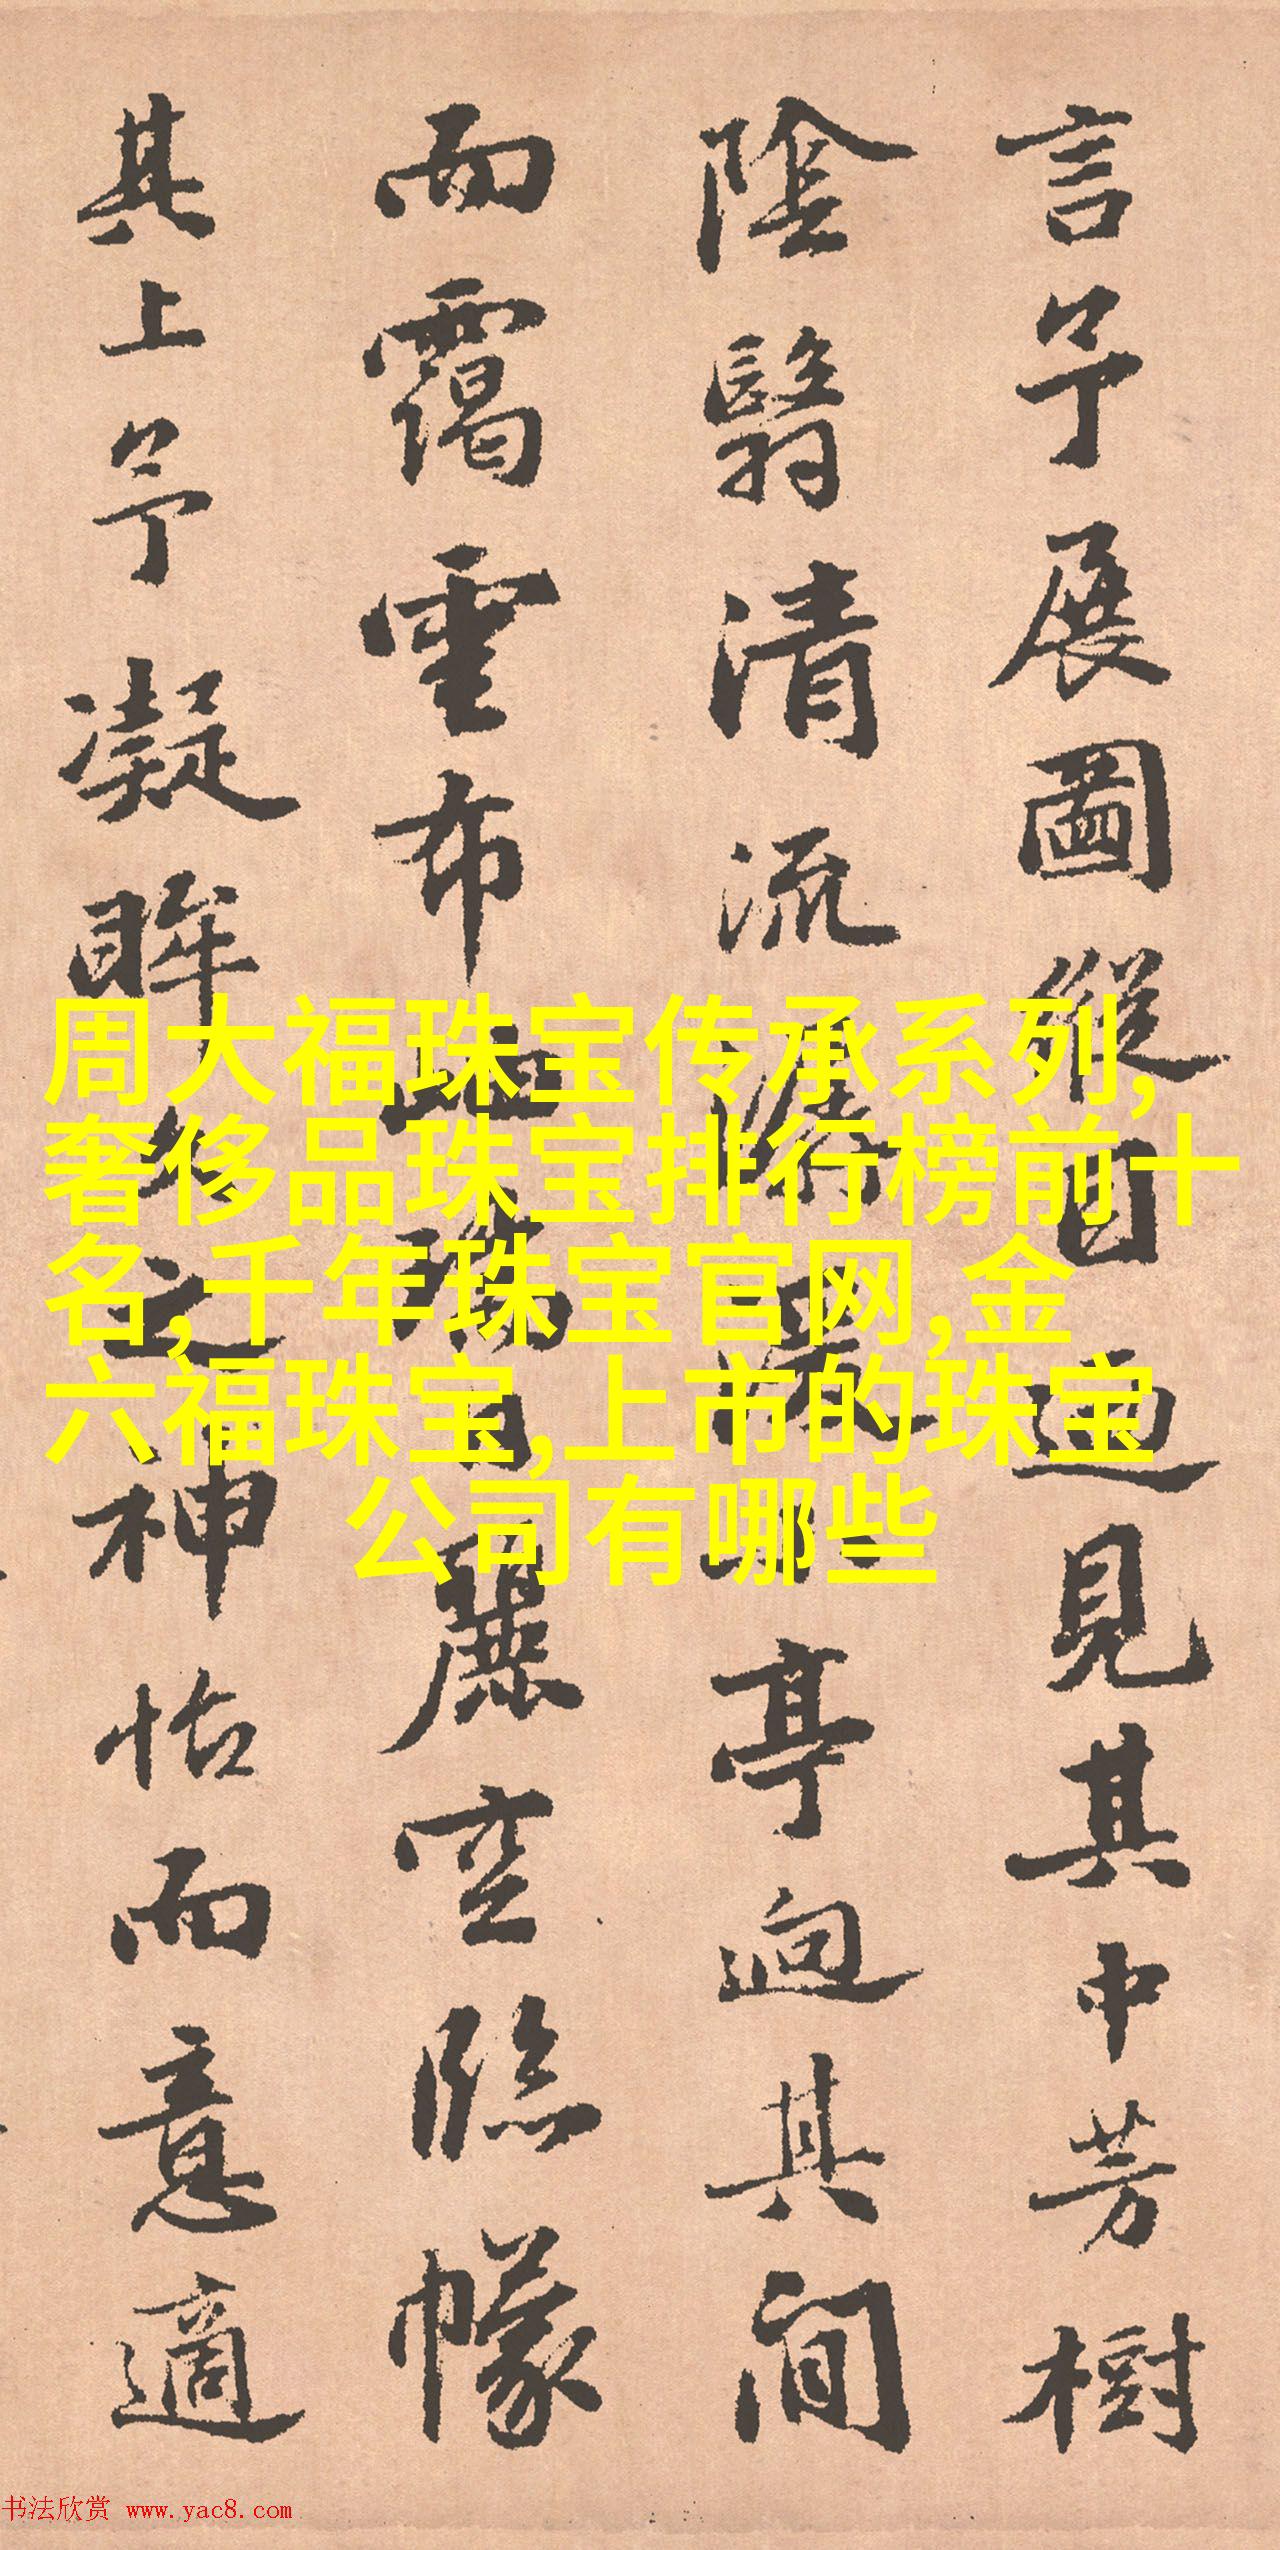 言予展圖縱目遍見其中芳樹
陰翳清流潺湲亭迥其間
而靄雲布地瑞日麗空臨幪
其上予凝眸久之神怡而意適
周大福珠宝传承系列,
奢侈品珠宝排行榜前十
名,千年珠宝官网,金
六福珠宝,上市的珠宝
公司有哪些
书法欣赏 www.yac8.com